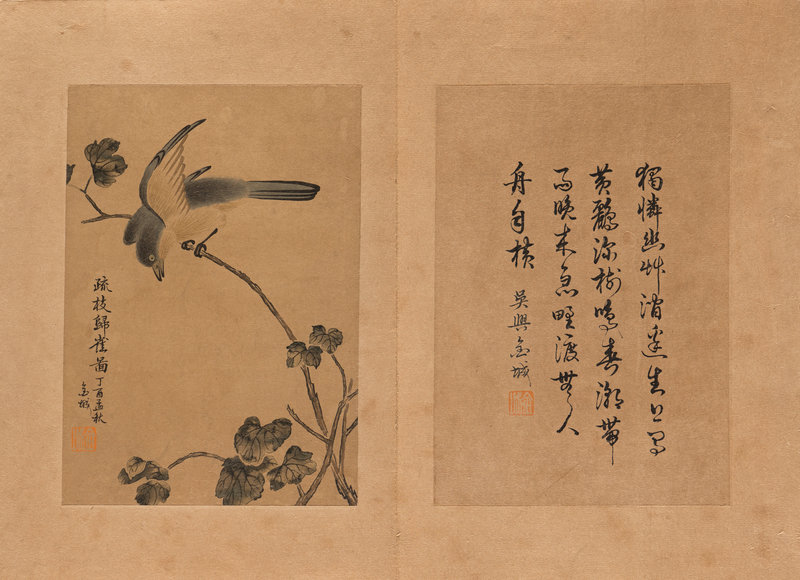 獨憐幽艸澗邊生上有
黃鸝深樹鳴春潮帶
雨晚來急野渡無人
舟自橫
吳興金城
疏枝歸雀圖
丁酉孟秋
金城